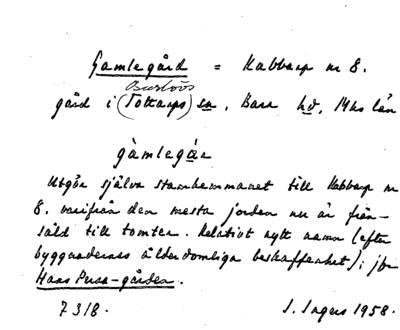 Gamlegård = Kabbarp nr 8.
Burlövs
gård i (Tottarps) sn, Bara hd, Mhs län
gàmlegår
Utgör själva stamhemmanet till Kabbarp nr
8. varifrån den mesta jorden nu är från-
såld till tomter. Relativt nytt namn (efter
byggnadernas ålderdomliga beskaffenhet); jfr
Hans Persa-gården.
7318. I. Ingers 1958.